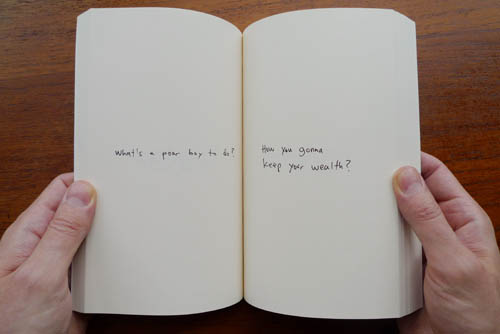 What's a poor boy to do?
How you gonna
keep your wealth?